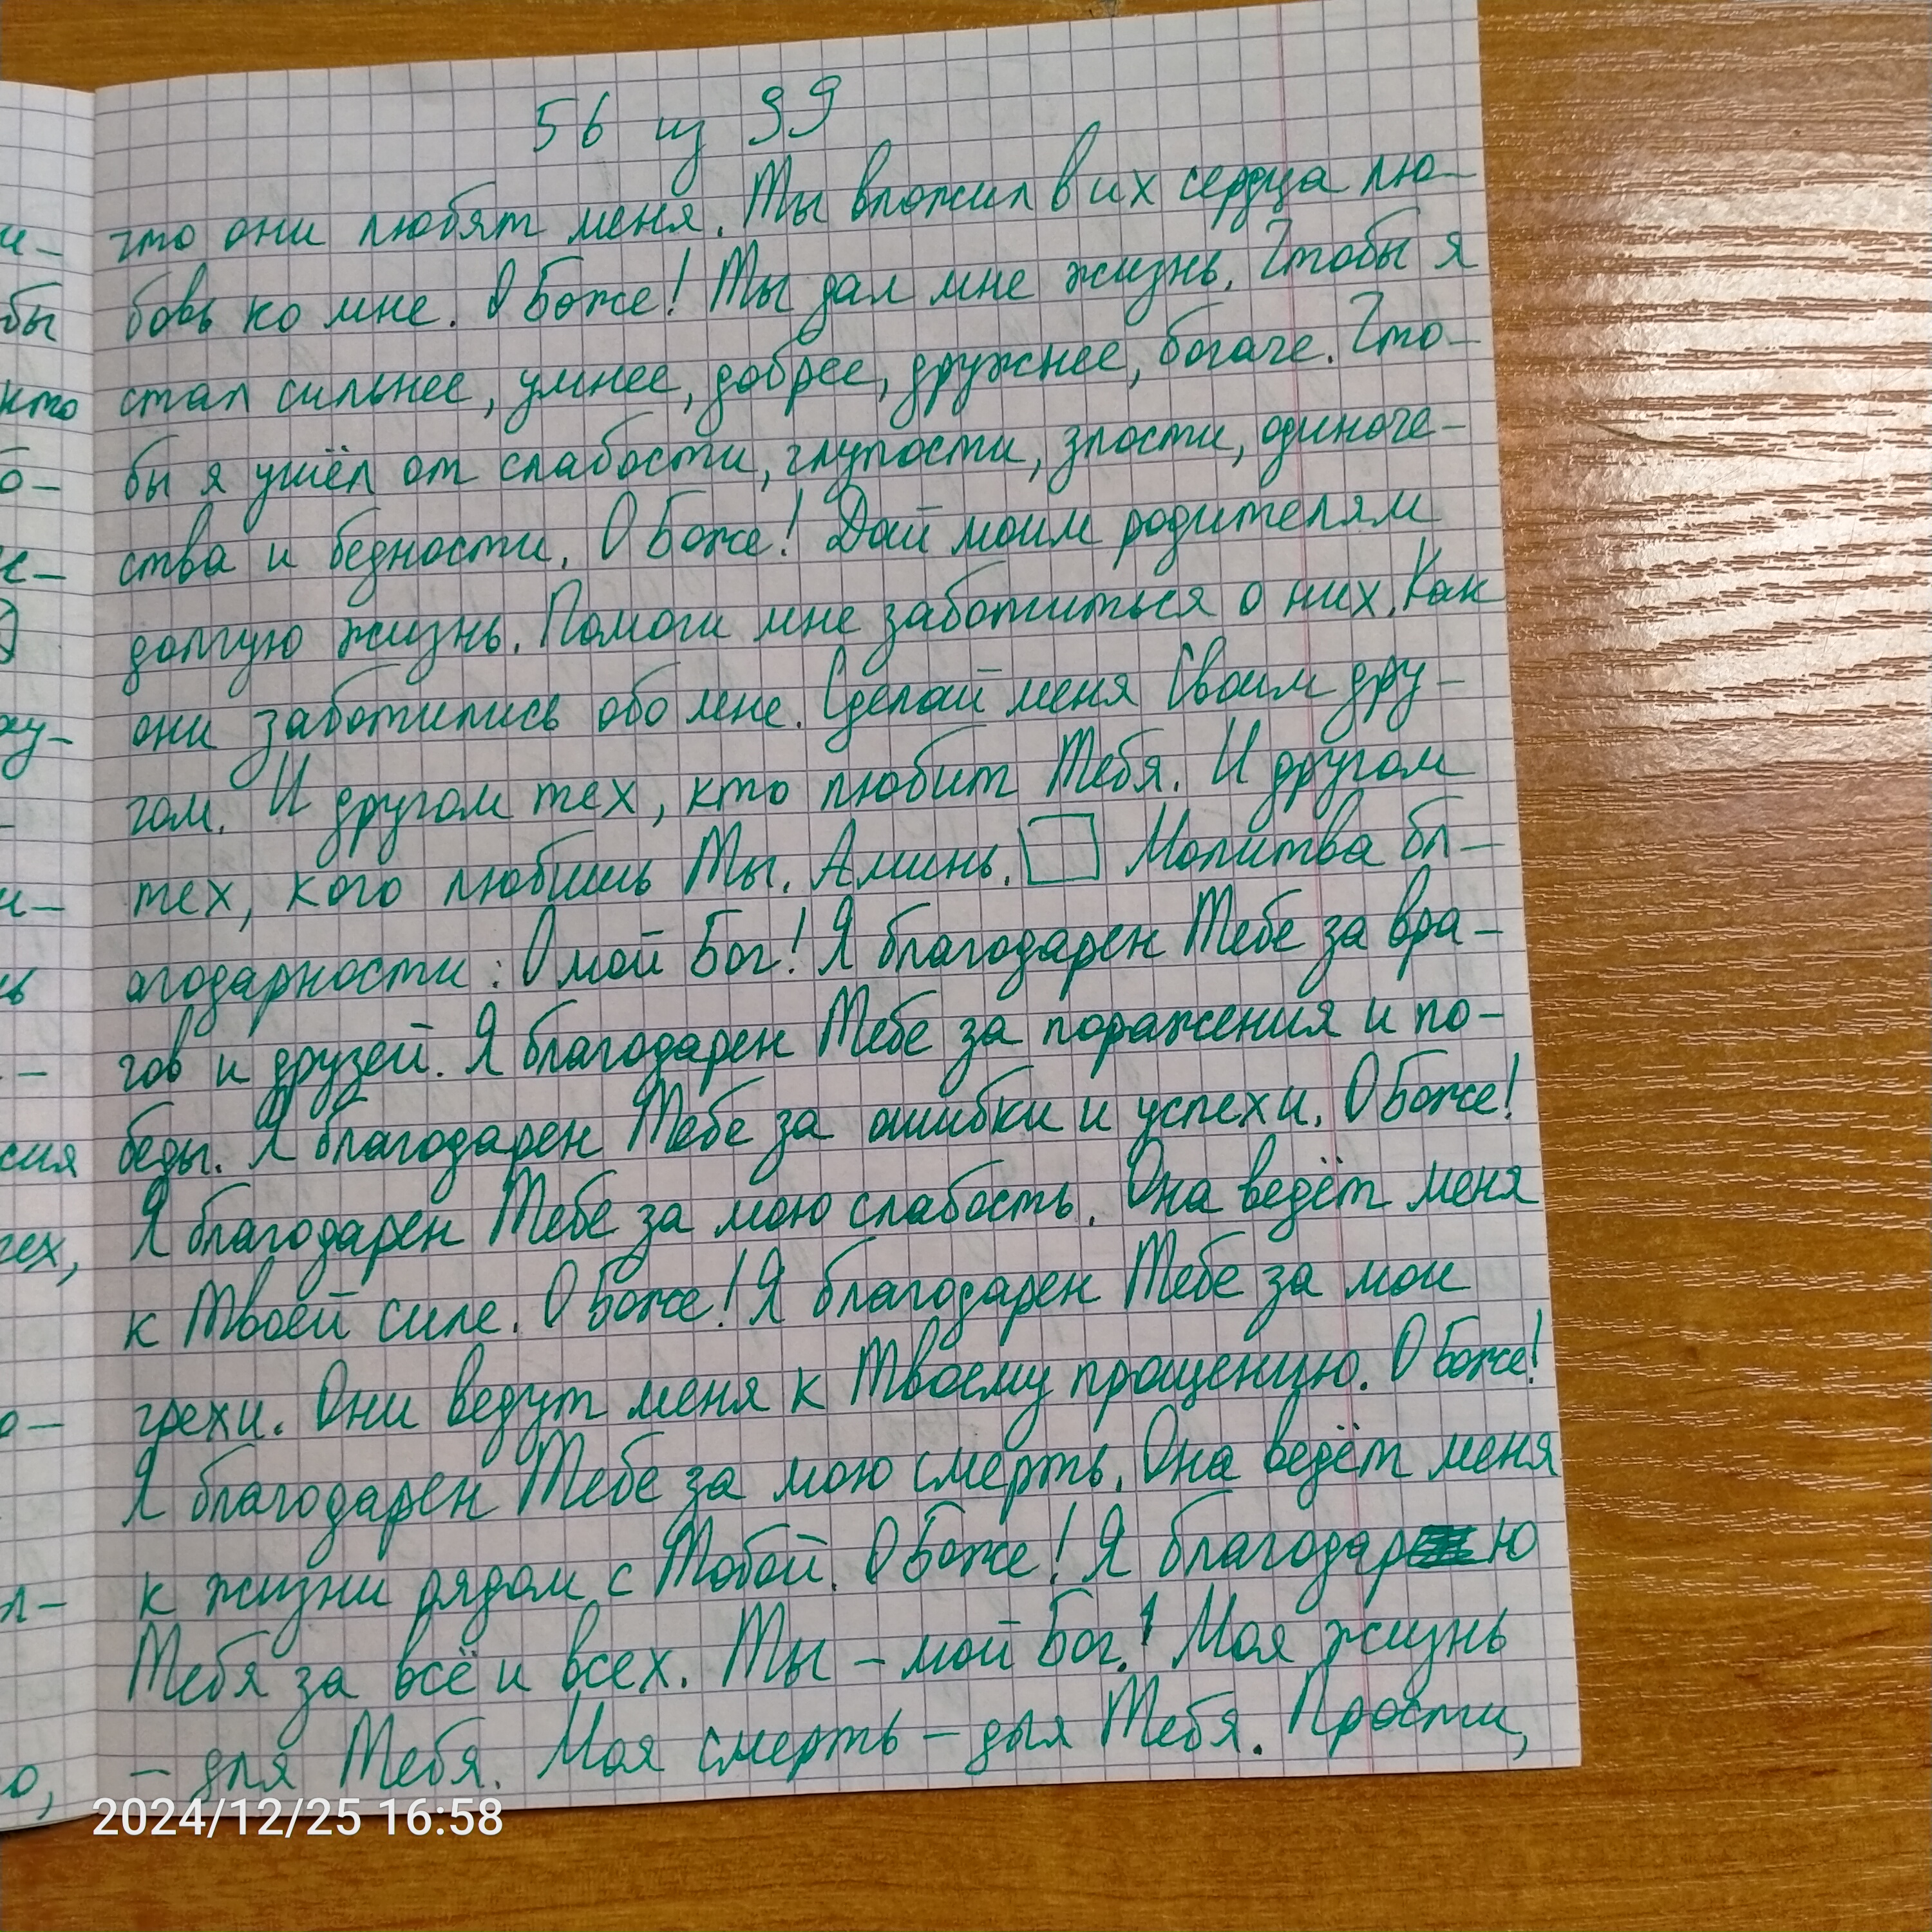 56 из 99
что они любят меня. Ты вложил в их сердца лю-
бовь ко мне. О Боже! Ты дал мне жизнь. Чтобы я
стал сильнее, умнее, добрее, дружнее, богаче. Что-
бы я ушёл от слабости, глупости, злости, одиноче-
ства и бедности. О Боже! Дай моим родителям
долгую жизнь. Помоги мне заботиться о них. Как
они заботились обо мне. Сделай меня Своим дру-
гом. И другом тех, кто любит Тебя. И другом
тех, кого любишь Ты. Аминь. Молитва бл-
агодарности: О мой Бог! Я благодарен Тебе за вра-
гов и друзей. Я благодарен Тебе за поражения и по-
беды. Я благодарен Тебе за ошибки и успехи. О Боже!
Я благодарен Тебе за мою слабость. Она ведёт меня
к Твоей силе. О Боже! Я благодарен Тебе за мои
грехи. Они ведут меня к Твоему прощению. О Боже!
Я благодарен Тебе за мою смерть. Она ведёт меня
к жизни рядом с Тобой. О Боже! Я благодарю
Тебя за всё и всех. Ты - мой Бог! Моя жизнь
- для Тебя. Моя смерть - для Тебя. Прости,
и-
бы
кто
о-
ку-
и-
сия
тех,
о-
л-
о,
2024/12/25 16:58